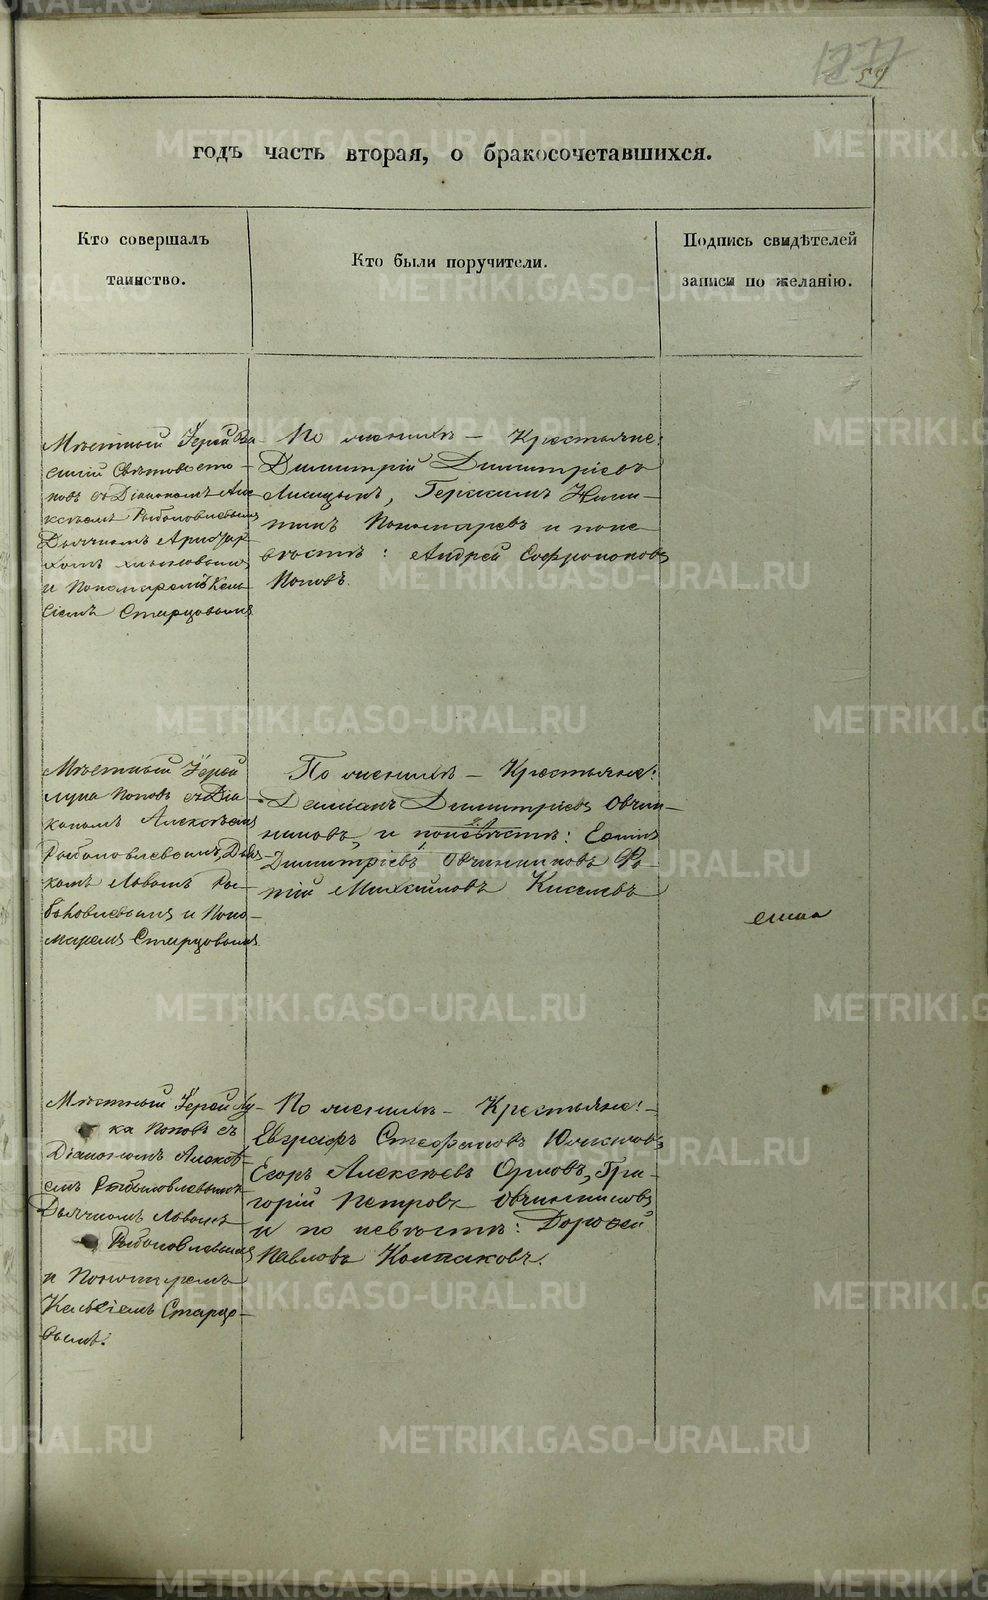 1277
59
годъ часть вторая, о бракосочетавшихся.
Кто совершалъ
таинство.
Кто были поручители.
Подпись свидѣтелей
записи по желанію.
Мѣстный Іерей Ва-
силій Свѣтовосто-
ковъ съ Діакономъ Але-
ксѣемъ Рыболовлевымъ
Дьячкомъ
и Пономаремъ Кель-
сіемъ Старцовымъ
По женихѣ – Крестьяне:
Димитрій Димитріевъ
Лисицынъ, Герасимъ Ники-
тинъ Пономаревъ и по не-
вѣстѣ: Андрей Софроновъ
Поповъ.
Мѣстный Іерей
Лука Поповъ съ Діа-
кономъ Алексѣемъ
Рыболовлевымъ, Дьяч-
комъ Львомъ Ры-
боловлевымъ и Поно-
маремъ Старцовымъ
По женихѣ – Крестьяне:
Деміанъ Димитріевъ Овчин-
никовъ, и по невѣстѣ:
Димитріевъ Овчинниковъ
Михаиловъ Киселевъ
Мѣстный Іерей Лу-
ка Поповъ съ
Діакономъ Алексѣ-
емъ Рыболовлевымъ
Дьячкомъ Львомъ
Рыболовлевымъ
и Пономаремъ
Кельсіемъ Старцо-
вымъ.
По женихѣ – Крестьяне:
Евграфъ Стефановъ
Егоръ Алексѣевъ Орловъ, Гри-
горій Петровъ Овчинниковъ
и по невѣстѣ: Дорофей
Павловъ Колпаковъ.
METRIKI.GASO-URAL.RU